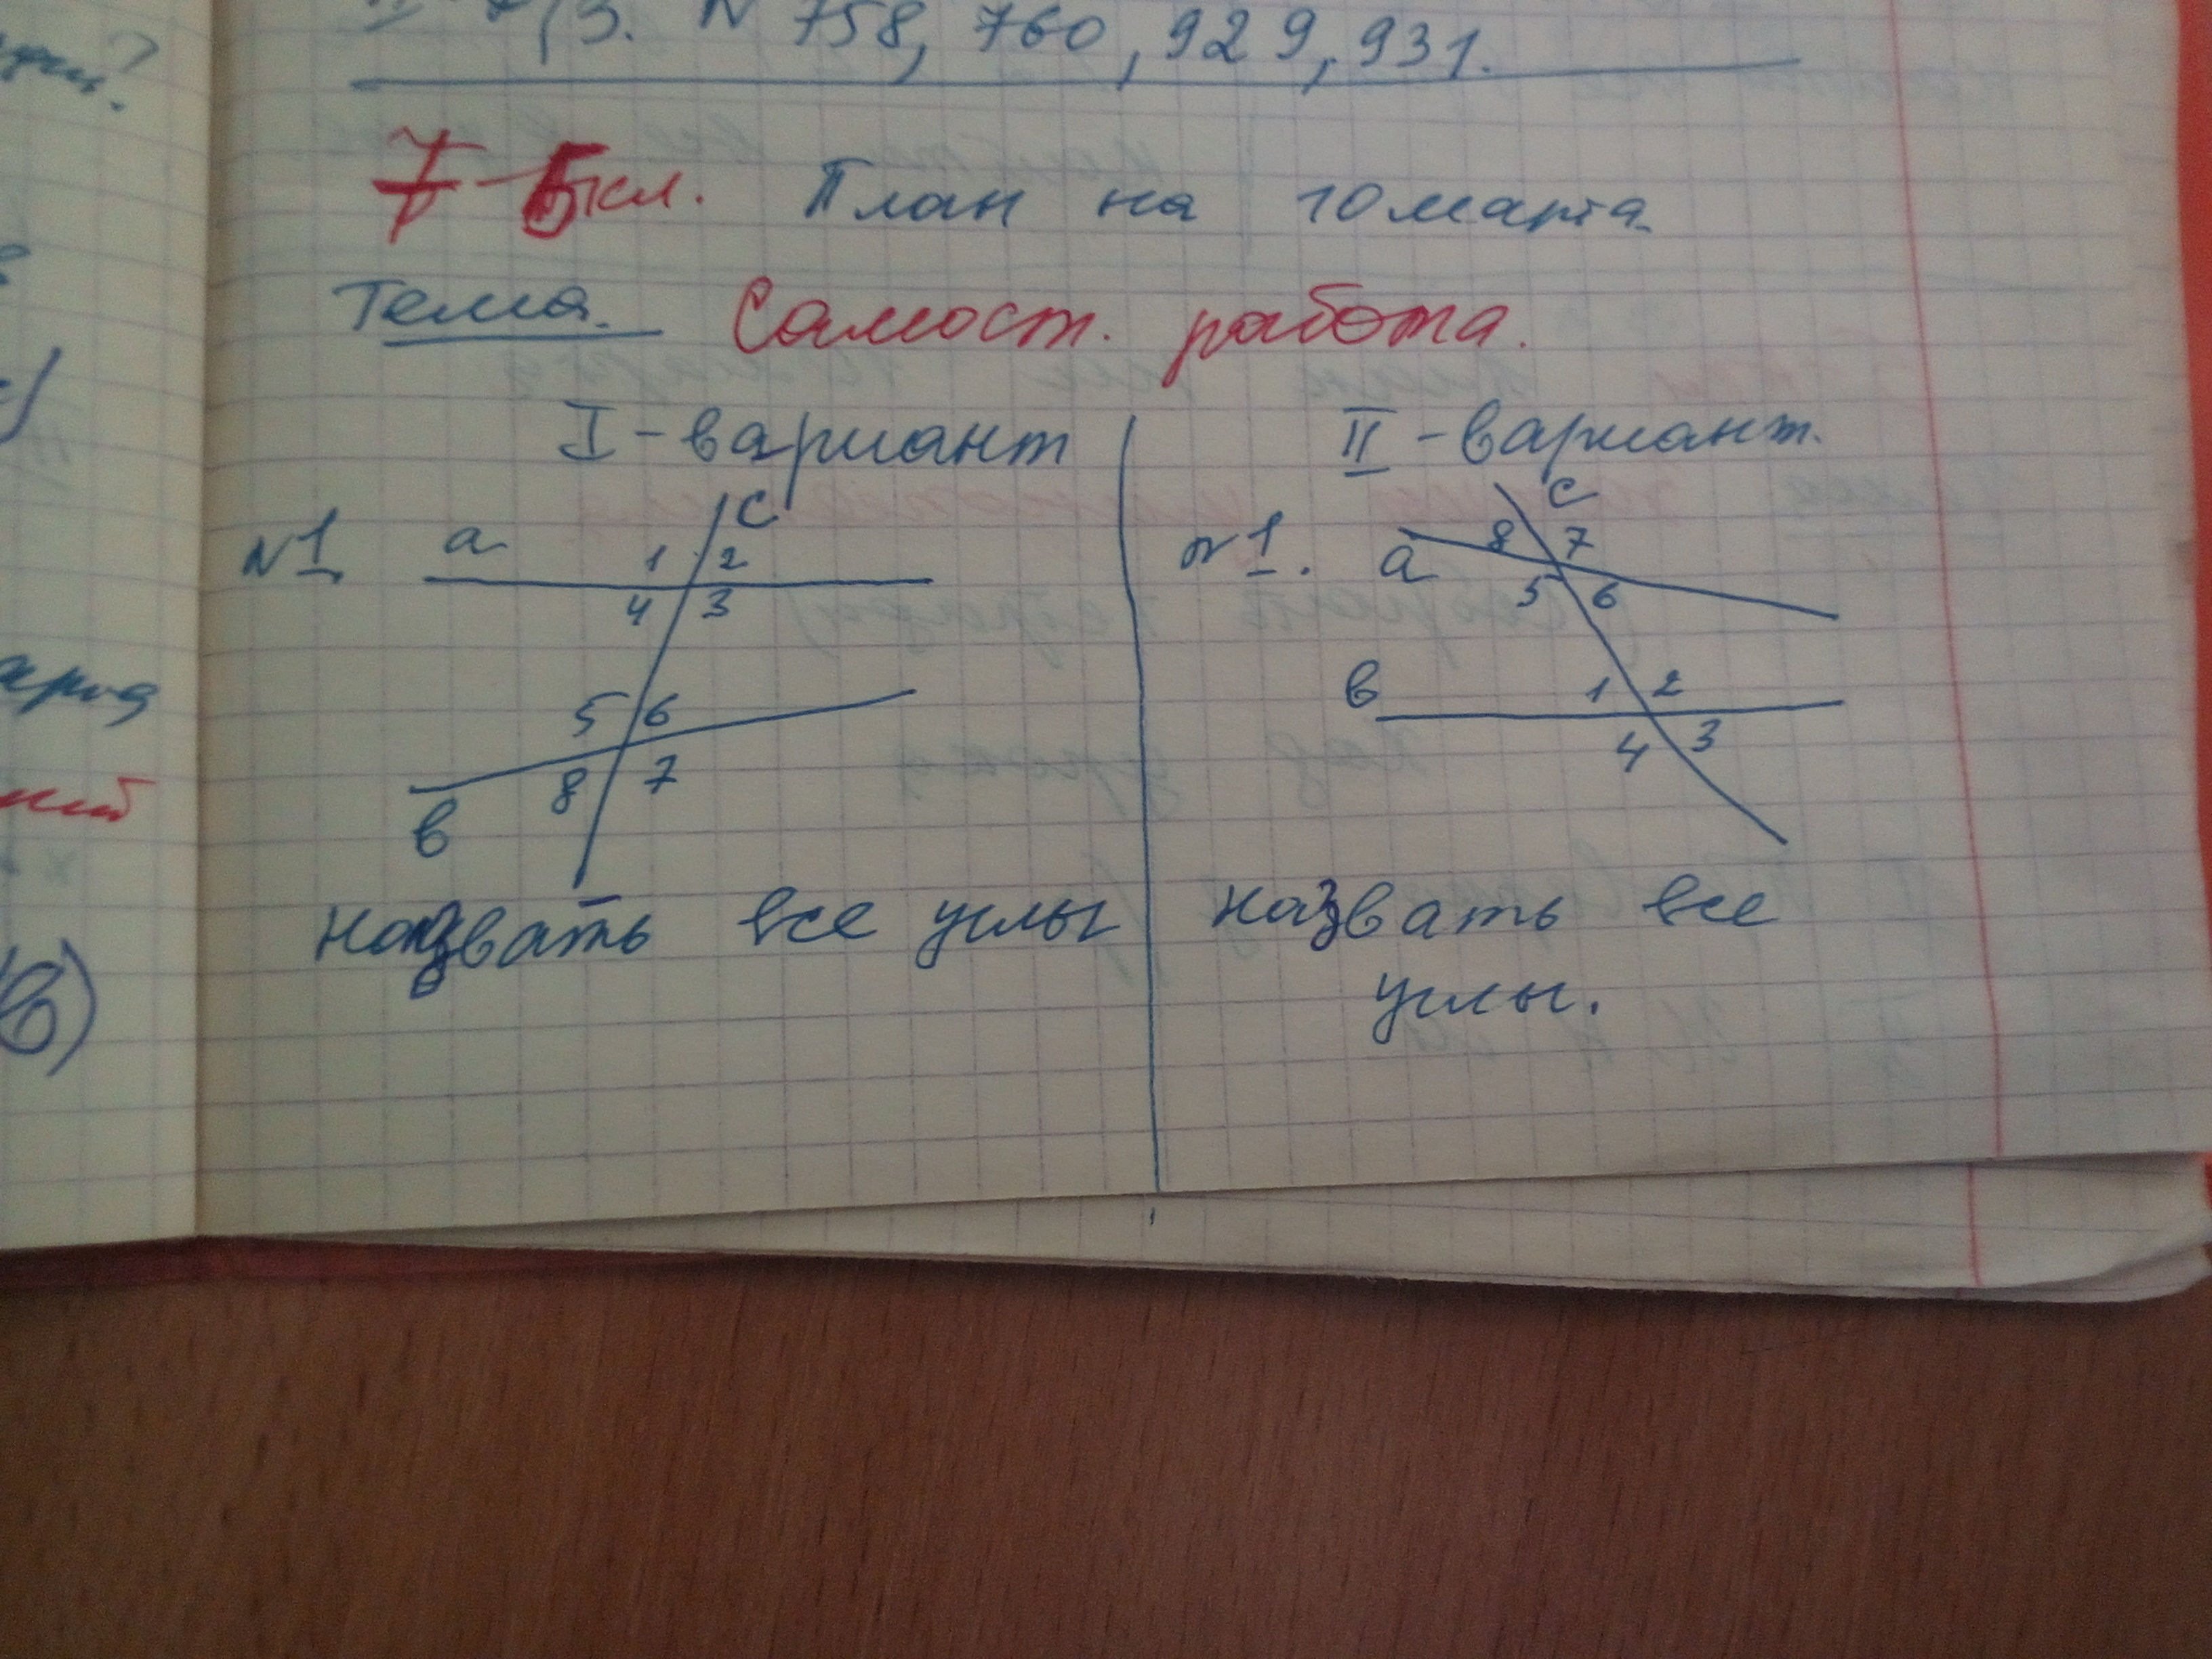 /З. N 758, 760, 929, 931.
7-Бкл. План на 10 марта
Тема. Самост. работа.
I-вариант
II-вариант.
N1
a
c
1 2
4 3
5 6
8 7
в
назвать все углы
N1.
a
c
8 7
5 6
в
1 2
4 3
назвать все
углы.